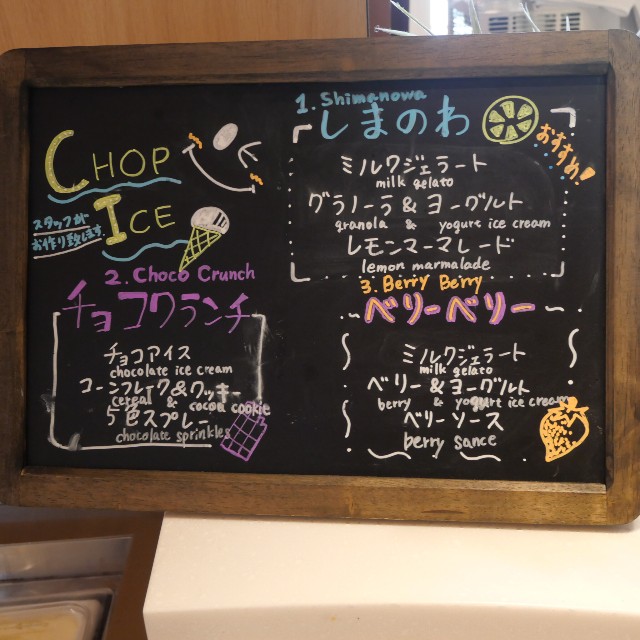 CHOP
ICE
スタッフが
お作り致します
1. Shimanowa
しまのわ
おすすめ!
ミルクジェラート
milk gelato
グラノーラ & ヨーグルト
granola & yogurt ice cream
レモンマーマレード
lemon marmalade
2. Choco Crunch
チョコクランチ
チョコアイス
chocolate ice cream
コーンフレーク&クッキー
cereal & cocoa cookie
5色スプレー
chocolate sprinkles
3. Berry Berry
ベリーベリー
ミルクジェラート
milk gelato
ベリー & ヨーグルト
berry & yogurt ice cream
ベリーソース
berry sance